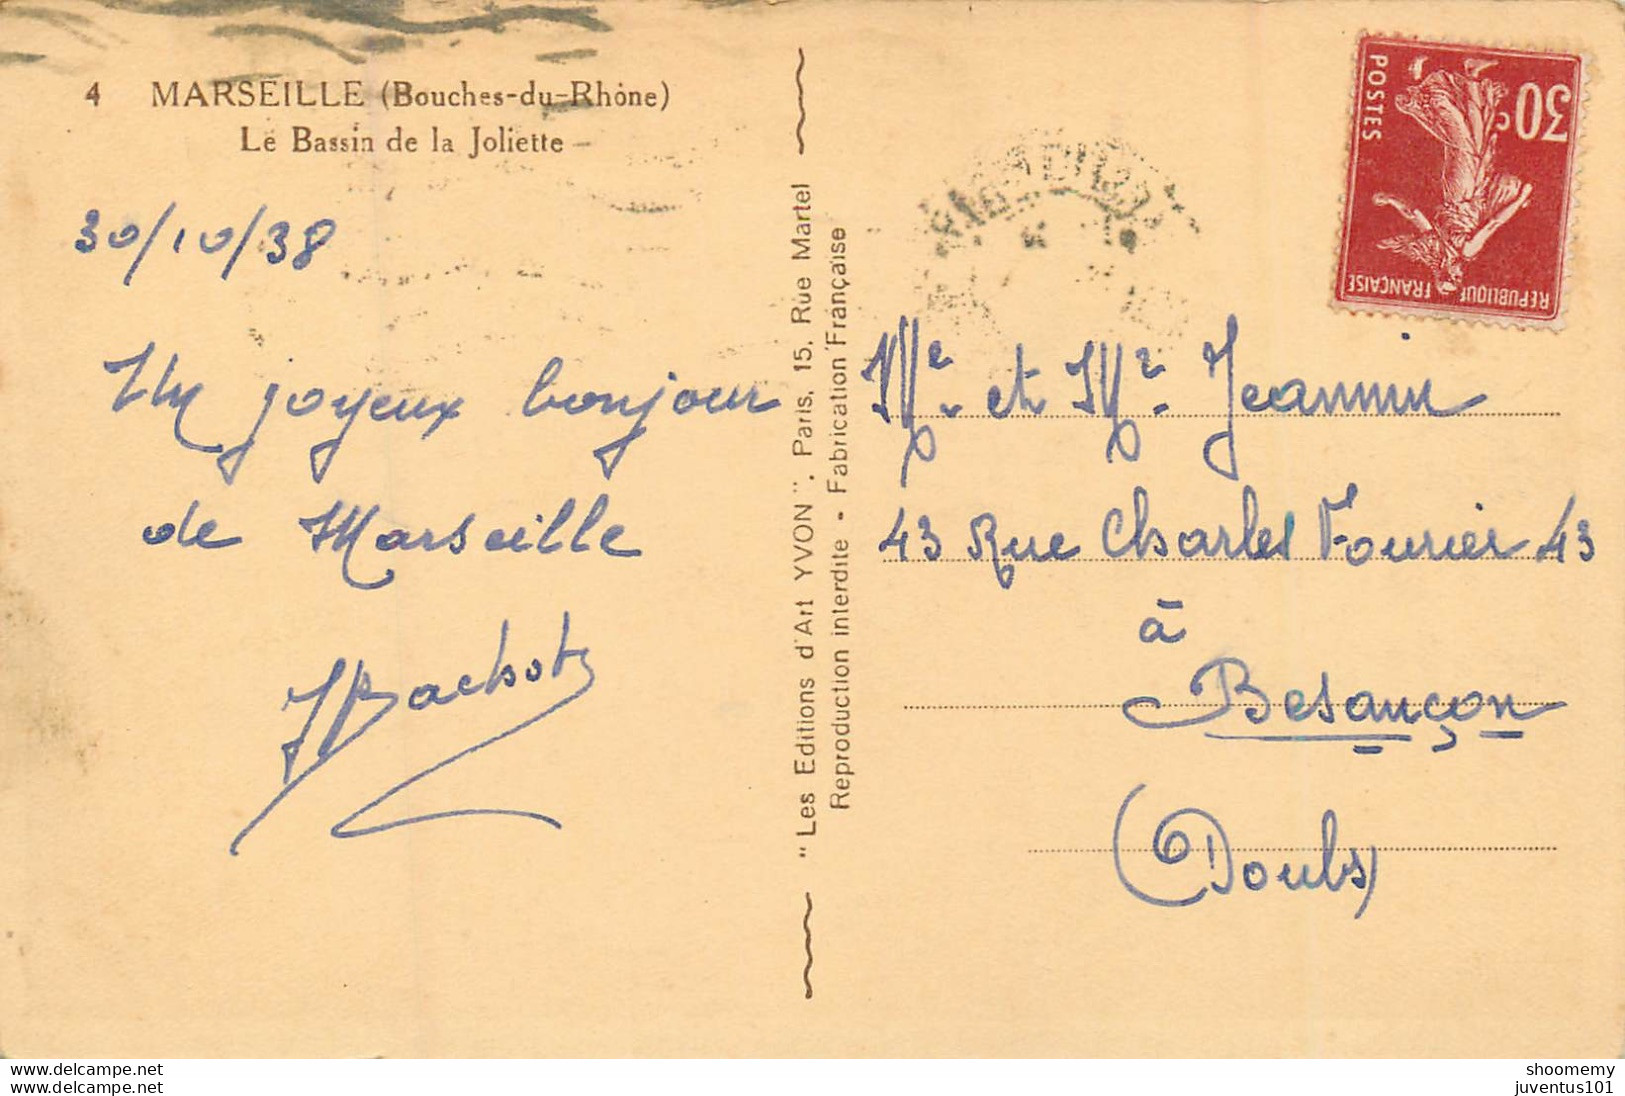 4 MARSEILLE (Bouches-du-Rhône)
Le Bassin de la Joliette
30/10/38
Un joyeux bonjour
de Marseille
JBachot
"Les Editions d'Art YVON". Paris, 15, Rue Martel
Reproduction interdite - Fabrication Française
POSTES
30c
REPUBLIQUE FRANÇAISE
Me. et Mr. Jeannin
43 Rue Charles Fourier 43
à
Besançon
(Doubs)
www.delcampe.net
www.delcampe.net
shoomemy
juventus101